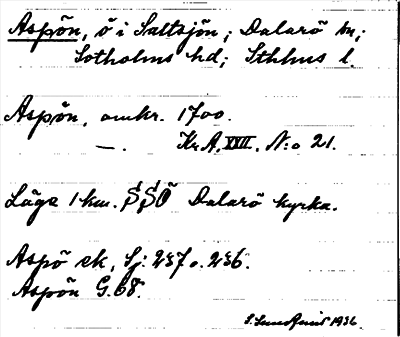 Aspön, ö i Saltsjön; Dalarö sn;
Sotholms hd; Sthlms l.
Aspön, omkr. 1700.
—. Kr.A. XXIII. N:o 21.
Läge 1 km. SSÖ Dalarö kyrka.
Aspö ek, Sj: 237 o. 236.
Aspön G. 68.
1936